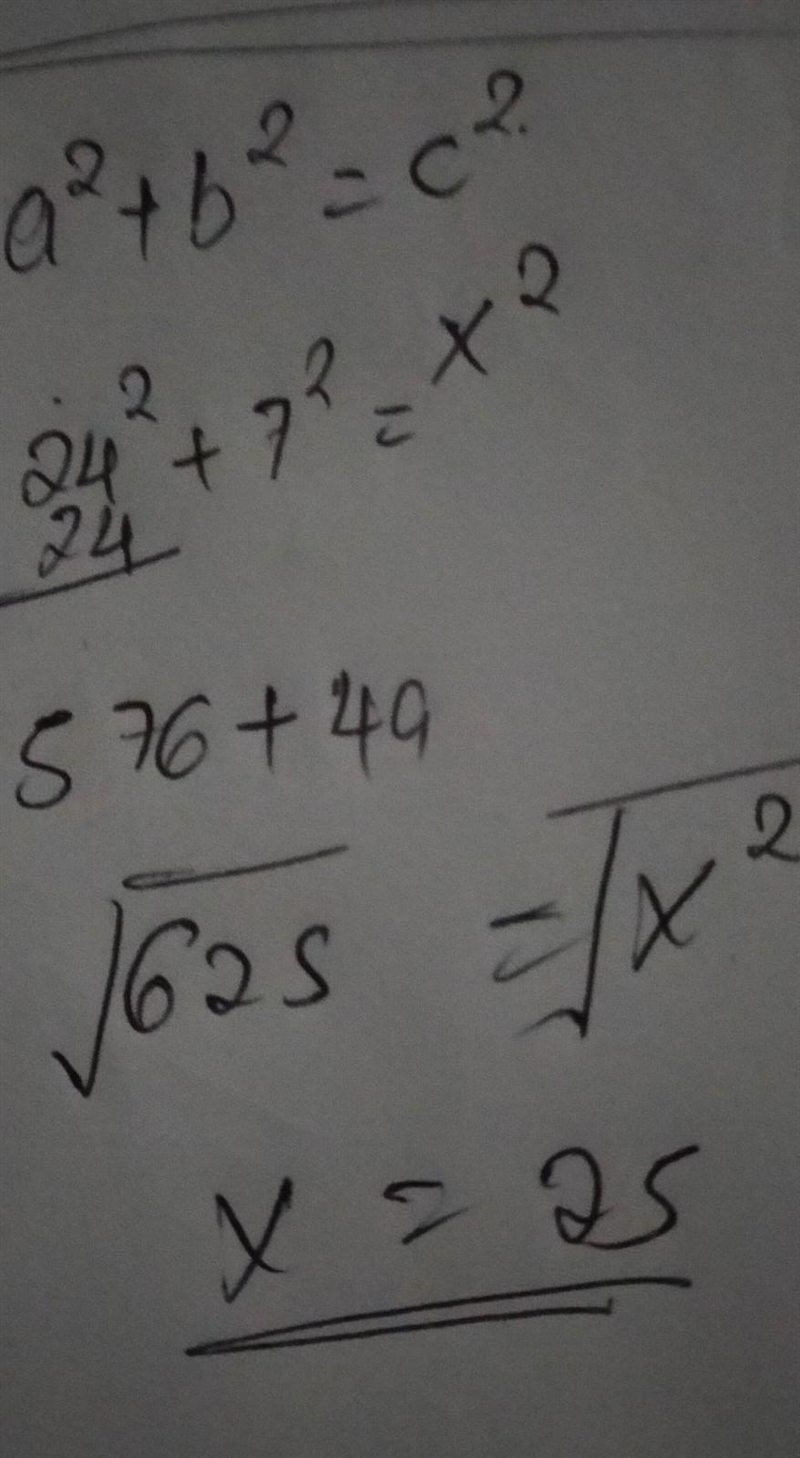 a² + b² = c².
24² + 7² = x²
24
576 + 49
√625 = √x²
x = 25